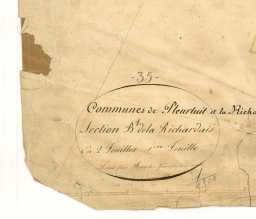 -35-
Communes de Pleurtuit et la Richa
Section B de la Richardais
En 2 Feuilles 1ère Feuille